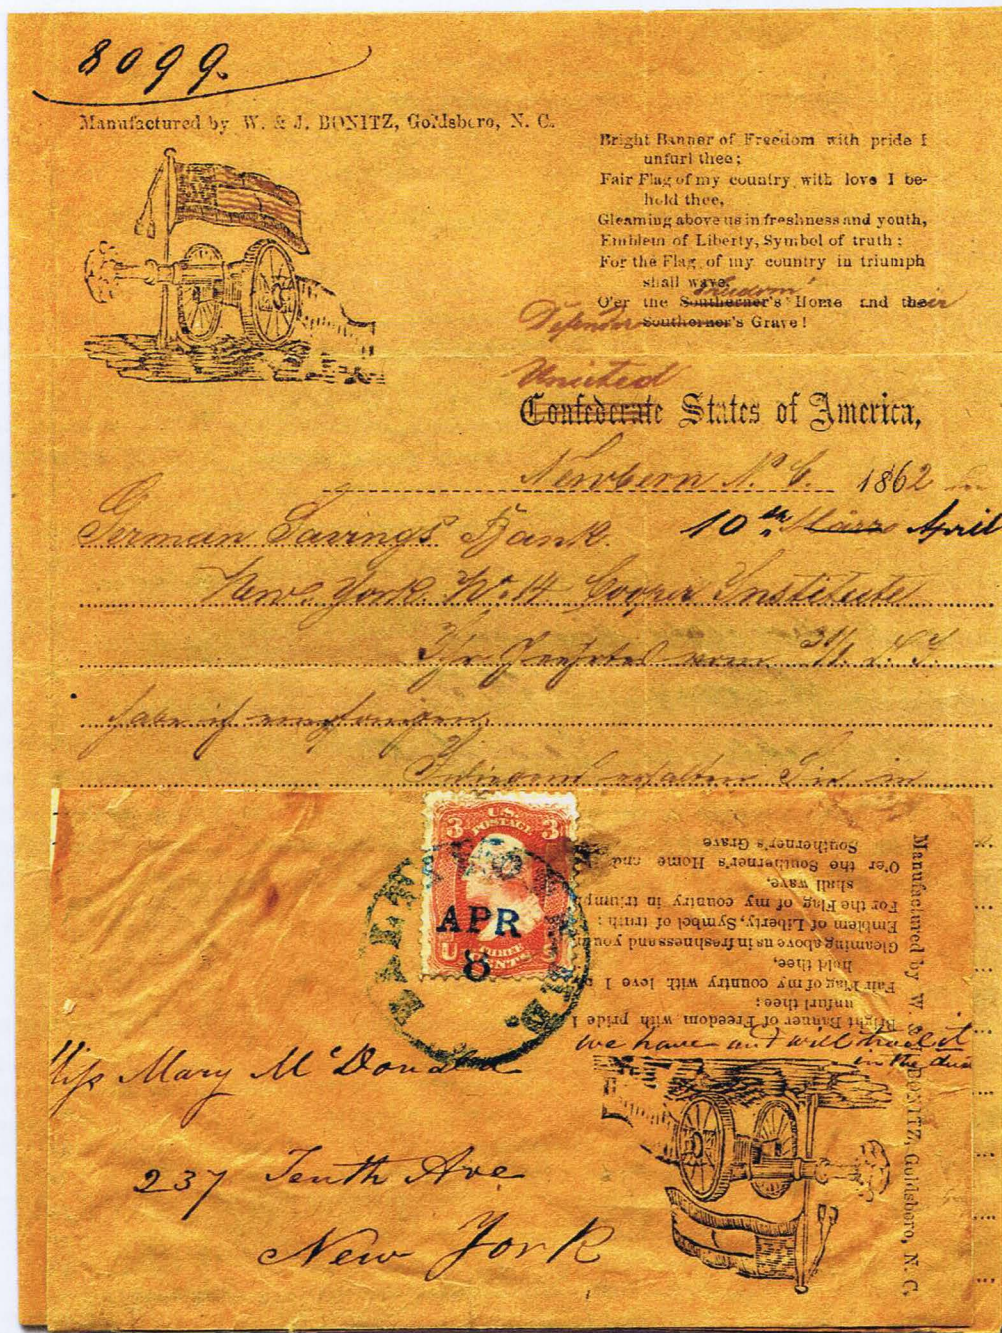 8099.
Manufactured by W. & J. BONITZ, Goldsboro, N. C.
Bright Banner of Freedom with pride I
unfurl thee;
Fair Flag of my country with love I be-
hold thee,
Gleaming above us in freshness and youth,
Emblem of Liberty, Symbol of truth;
For the Flag of my country in triumph
shall wave,
freedom'
O'er the Southerner's Home and their
Defender Southerner's Grave!
United
Confederate States of America,
Newbern N. C. 1862
German Savings Bank. 10th März April
New York No. 4 Cooper Institute
Ihr Geehrtes vom
habe ich empfangen.
erhalten Sie in
3 U.S. POSTAGE 3
U THREE CENTS S
BALTIMORE MD.
APR
8
Manufactured by W. & J. BONITZ, Goldsboro, N. C.
Bright Banner of Freedom with pride I
unfurl thee;
Fair Flag of my country with love I
hold thee,
Gleaming above us in freshness and you
Emblem of Liberty, Symbol of truth;
For the Flag of my country in triump
shall wave,
O'er the Southerner's Home and
Southerner's Grave
we have and will trail it
in the dus
Miss Mary McDonald
237 Tenth Ave
New York